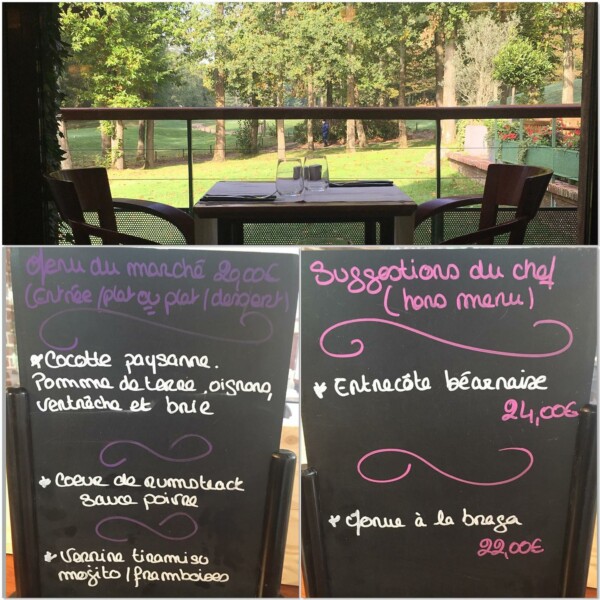 Menu du marché 20,00€
(Entrée/plat ou plat/dessert)
* Cocotte paysanne.
Pomme de terre, oignons,
ventrèche et brie
* Coeur de rumsteack
sauce poivre
* Verrine tiramisu
mojito/framboises
Suggestions du chef
(hors menu)
* Entrecôte béarnaise
24,00€
* Morue à la braga
22,00€